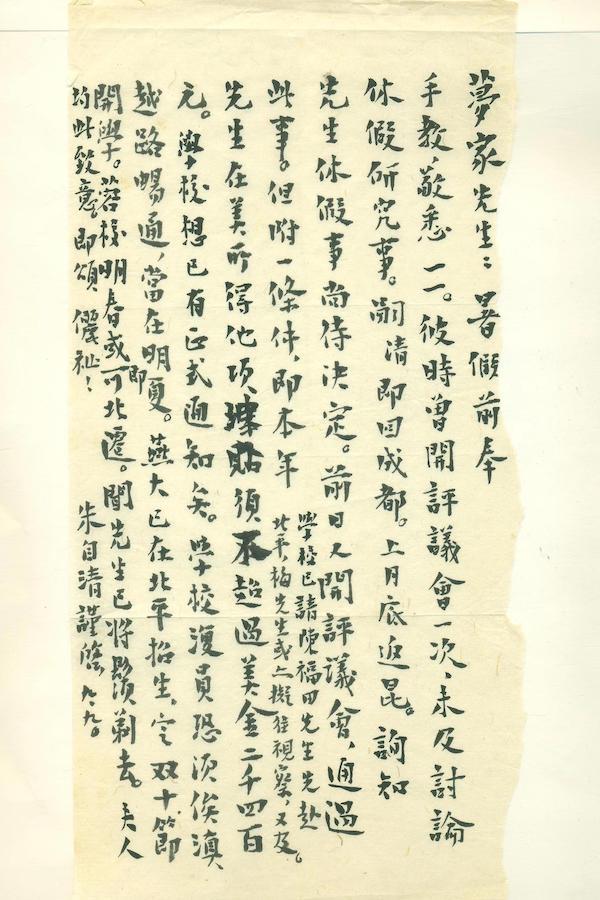 夢家先生：暑假前奉
手教，敬悉一一。彼時曾開評議會一次，未及討論
休假研究事。嗣清即回成都。上月底返昆。詢知
先生休假事尚待決定。前日又開評議會，通過
此事。但附一條件，即本年
學校已請陳福田先生先赴
北平，梅先生或亦擬往視察，又及。
先生在美所得他項津貼須不超過美金二千四百
元。學校想已有正式通知矣。學校復員恐須俟滇
越路暢通，當在明夏。燕大已在北平招生，定双十節
開學。蓉校明春或即可北遷。聞先生已將鬚剃去。夫人
均此致意，即頌 儷祉！
朱自清謹啓 九、九。